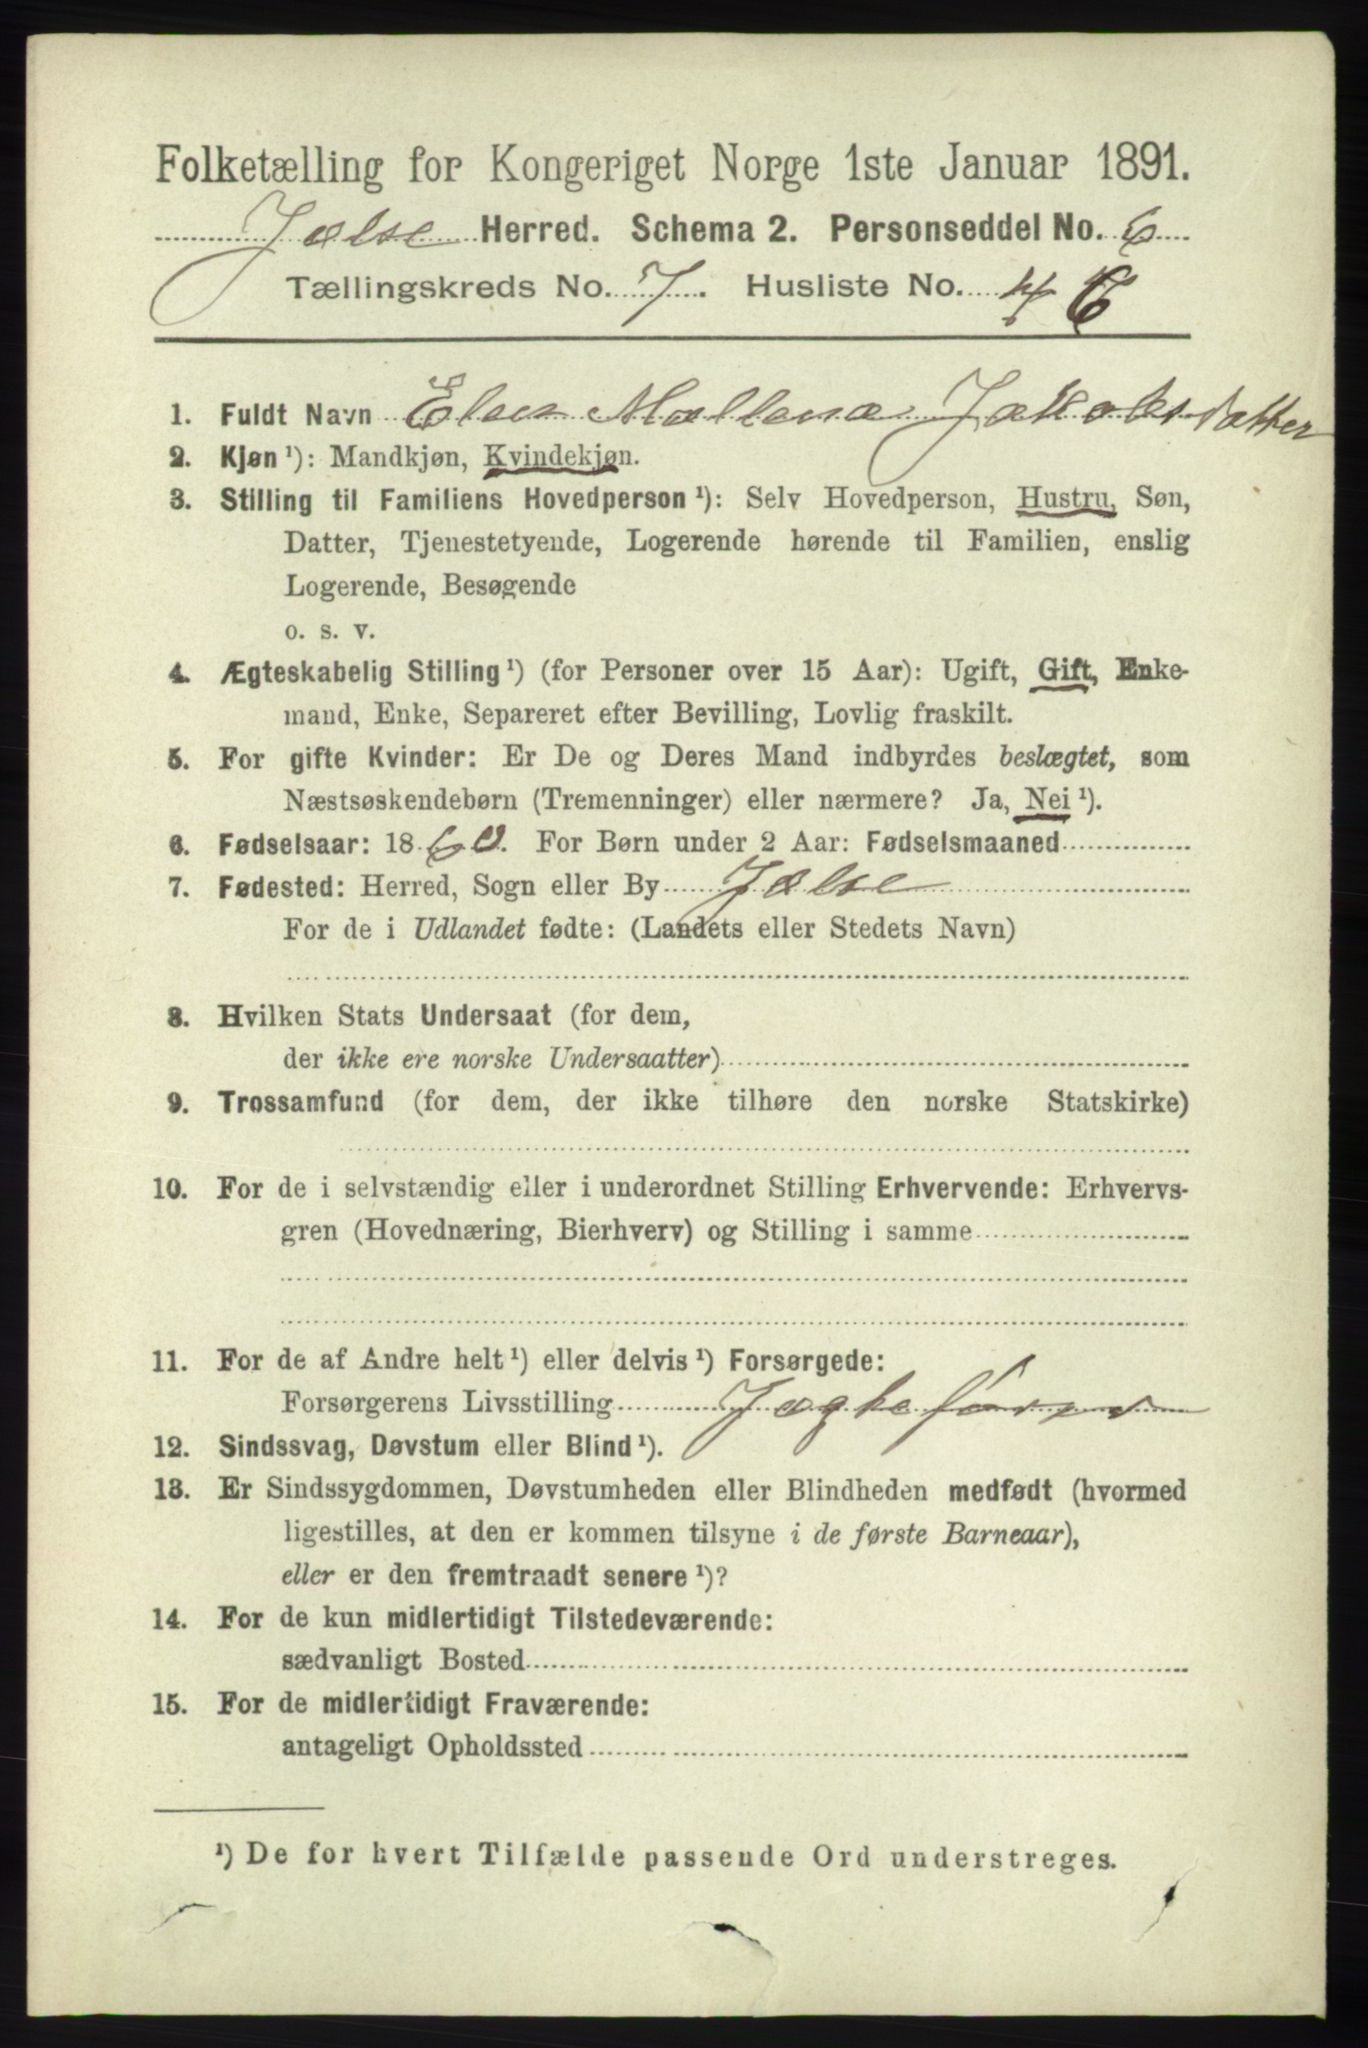 Folketælling for Kongeriget Norge 1ste Januar 1891.
Jælse Herred. Schema 2. Personseddel No. 6
Tællingskreds No. 7. Husliste No. 6
1. Fuldt Navn Elen Mallena Jakobsdatter
2. Kjøn ¹): Mandkjøn, Kvindekjøn.
3. Stilling til Familiens Hovedperson ¹): Selv Hovedperson, Hustru, Søn,
Datter, Tjenestetyende, Logerende hørende til Familien, enslig
Logerende, Besøgende
o. s. v.
4. Ægteskabelig Stilling ¹) (for Personer over 15 Aar): Ugift, Gift, Enke-
mand, Enke, Separeret efter Bevilling, Lovlig fraskilt.
5. For gifte Kvinder: Er De og Deres Mand indbyrdes beslægtet, som
Næstsøskendebørn (Tremenninger) eller nærmere? Ja, Nei ¹).
6. Fødselsaar: 1860. For Børn under 2 Aar: Fødselsmaaned
7. Fødested: Herred, Sogn eller By Jælse
For de i Udlandet fødte: (Landets eller Stedets Navn)
8. Hvilken Stats Undersaat (for dem,
der ikke ere norske Undersaatter)
9. Trossamfund (for dem, der ikke tilhøre den norske Statskirke)
10. For de i selvstændig eller i underordnet Stilling Erhvervende: Erhvervs-
gren (Hovednæring, Bierhverv) og Stilling i samme
11. For de af Andre helt ¹) eller delvis ¹) Forsørgede:
Forsørgerens Livsstilling Jægtefører
12. Sindssvag, Døvstum eller Blind ¹).
13. Er Sindssygdommen, Døvstumheden eller Blindheden medfødt (hvormed
ligestilles, at den er kommen tilsyne i de første Barneaar),
eller er den fremtraadt senere ¹)?
14. For de kun midlertidigt Tilstedeværende:
sædvanligt Bosted
15. For de midlertidigt Fraværende:
antageligt Opholdssted
¹) De for hvert Tilfælde passende Ord understreges.